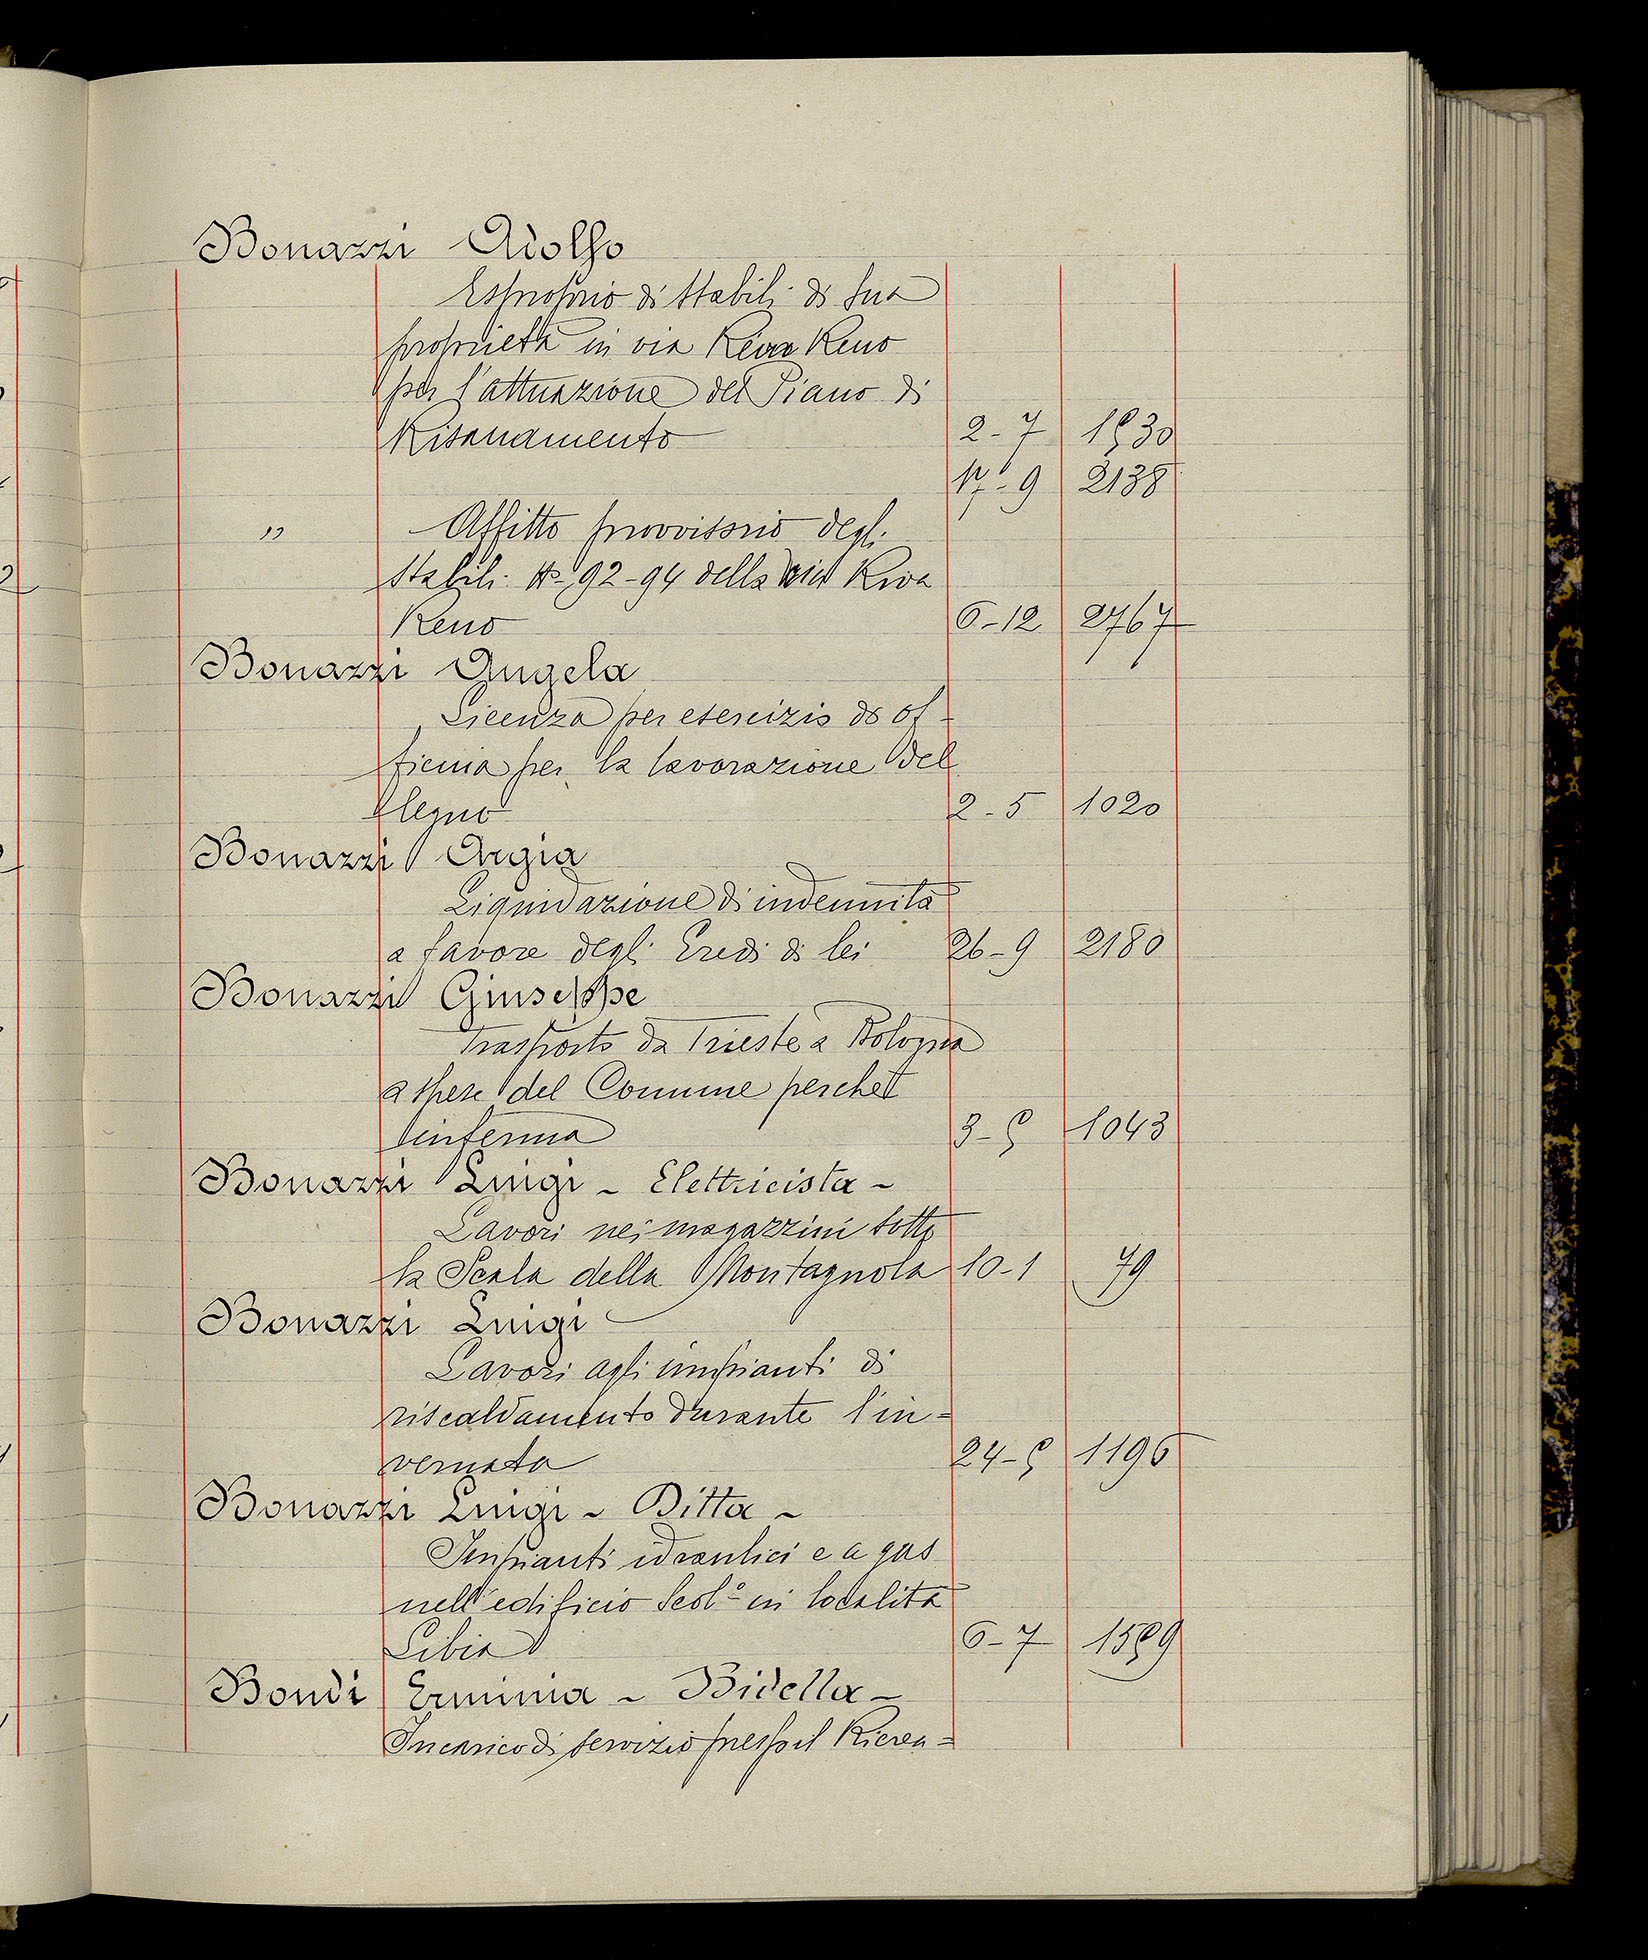 Bonazzi Adolfo
Esproprio di stabili di sua
proprietà in via Riva Reno
per l'attuazione del Piano di
Risanamento 2-7 1530
17-9 2138
" Affitto provvisorio degli
stabili N. 92-94 della via Riva
Reno 6-12 2767
Bonazzi Angela
Licenza per esercizio di of-
ficina per la lavorazione del
legno 2-5 1020
Bonazzi Argia
Liquidazione di indennità
a favore degli Eredi di lei 26-9 2180
Bonazzi Giuseppe
Trasporto da Trieste a Bologna
a spese del Comune perchè
infermo 3-5 1043
Bonazzi Luigi - Elettricista -
Lavori nei magazzini sotto
la Scala della Montagnola 10-1 79
Bonazzi Luigi
Lavori agli impianti di
riscaldamento durante l'in=
vernata 24-5 1196
Bonazzi Luigi - Ditta -
Impianti idraulici e a gas
nell'edificio Scol.º in località
Libia 6-7 1559
Bondi Erminia - Bidella -
Incarico di servizio presso il Ricrea=